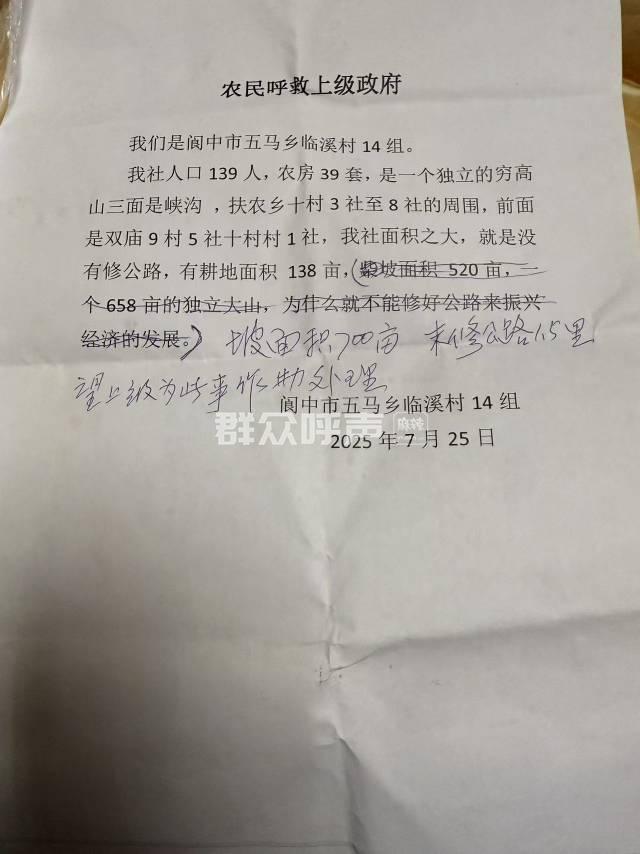 农民呼救上级政府
我们是阆中市五马乡临溪村 14 组。
我社人口 139 人，农房 39 套，是一个独立的穷高
山三面是峡沟 ，扶农乡十村 3 社至 8 社的周围，前面
是双庙 9 村 5 社十村村 1 社，我社面积之大，就是没
有修公路，有耕地面积 138 亩，（柴坡面积 520 亩，一
个 658 亩的独立大山，为什么就不能修好公路来振兴
经济的发展。） 坡面积700亩 未修公路15里
望上级为此事作出处理
阆中市五马乡临溪村 14 组
2025 年 7 月 25 日
群众呼声 麻辣